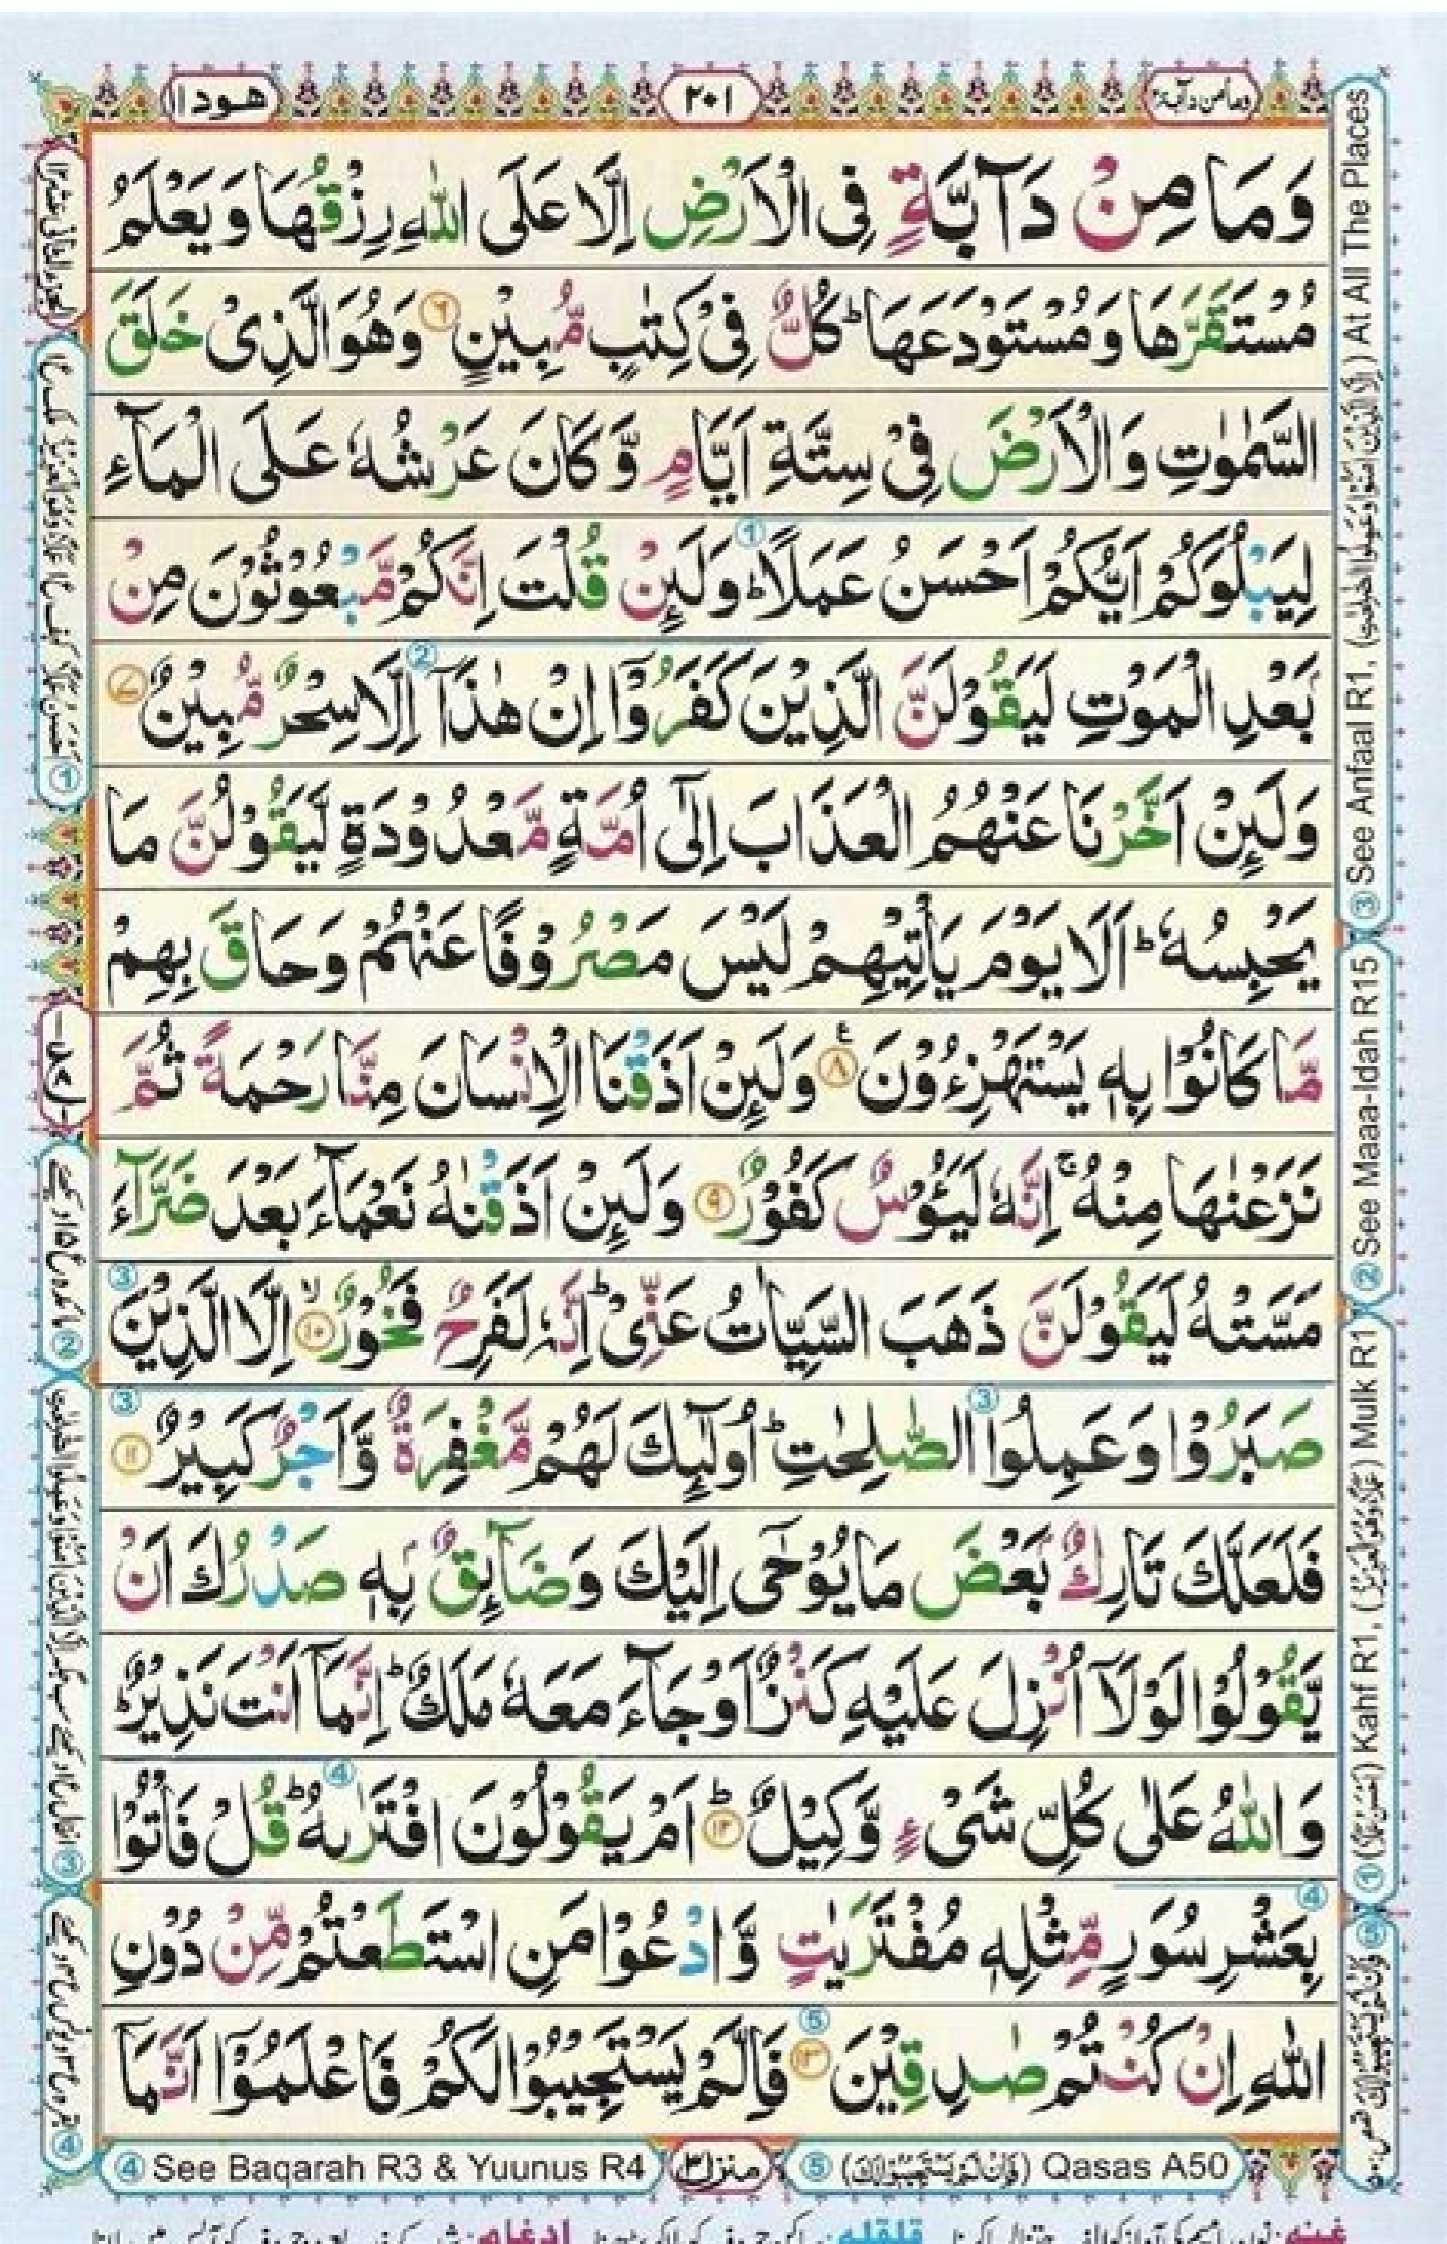 هود ۱۱
۲۰۱
ومامن دآبة ۱۲
وَمَا مِنْ دَآبَّةٍ فِى الْاَرْضِ اِلَّا عَلَى اللّٰهِ رِزْقُهَا وَيَعْلَمُ
مُسْتَقَرَّهَا وَمُسْتَوْدَعَهَا ؕ كُلٌّ فِىْ كِتٰبٍ مُّبِيْنٍ ۶ وَهُوَ الَّذِىْ خَلَقَ
السَّمٰوٰتِ وَالْاَرْضَ فِىْ سِتَّةِ اَيَّامٍ وَّكَانَ عَرْشُهٗ عَلَى الْمَآءِ
لِيَبْلُوَكُمْ اَيُّكُمْ اَحْسَنُ عَمَلًا ؕ ① وَلَئِنْ قُلْتَ اِنَّكُمْ مَّبْعُوْثُوْنَ مِنْۢ
بَعْدِ الْمَوْتِ لَيَقُوْلَنَّ الَّذِيْنَ كَفَرُوْۤا اِنْ هٰذَاۤ ② اِلَّا سِحْرٌ مُّبِيْنٌ ۷
وَلَئِنْ اَخَّرْنَا عَنْهُمُ الْعَذَابَ اِلٰٓى اُمَّةٍ مَّعْدُوْدَةٍ لَّيَقُوْلُنَّ مَا
يَحْبِسُهٗ ؕ اَلَا يَوْمَ يَاْتِيْهِمْ لَيْسَ مَصْرُوْفًا عَنْهُمْ وَحَاقَ بِهِمْ
مَّا كَانُوْا بِهٖ يَسْتَهْزِءُوْنَ ۸ ع وَلَئِنْ اَذَقْنَا الْاِنْسَانَ مِنَّا رَحْمَةً ثُمَّ
نَزَعْنٰهَا مِنْهُ ۚ اِنَّهٗ لَيَئُوْسٌ كَفُوْرٌ ۹ وَلَئِنْ اَذَقْنٰهُ نَعْمَآءَ بَعْدَ ضَرَّآءَ
مَسَّتْهُ لَيَقُوْلَنَّ ذَهَبَ السَّيِّاٰتُ عَنِّىْ ؕ اِنَّهٗ لَفَرِحٌ فَخُوْرٌ ۱۰ ۙ اِلَّا الَّذِيْنَ ③
صَبَرُوْا وَعَمِلُوا ③ الصّٰلِحٰتِ ؕ اُولٰٓئِكَ لَهُمْ مَّغْفِرَةٌ وَّاَجْرٌ كَبِيْرٌ ۱۱ ③
فَلَعَلَّكَ تَارِكٌۢ بَعْضَ مَا يُوْحٰٓى اِلَيْكَ وَضَآئِقٌۢ بِهٖ صَدْرُكَ اَنْ
يَّقُوْلُوْا لَوْلَاۤ اُنْزِلَ عَلَيْهِ كَنْزٌ اَوْ جَآءَ مَعَهٗ مَلَكٌ ؕ اِنَّمَاۤ اَنْتَ نَذِيْرٌ ؕ
وَاللّٰهُ عَلٰى كُلِّ شَىْءٍ وَّكِيْلٌ ؕ ۱۲ اَمْ يَقُوْلُوْنَ ④ افْتَرٰٮهُ ؕ قُلْ فَاْتُوْا
④ بِعَشْرِ سُوَرٍ مِّثْلِهٖ مُفْتَرَيٰتٍ وَّادْعُوْا مَنِ اسْتَطَعْتُمْ مِّنْ دُوْنِ
اللّٰهِ اِنْ كُنْتُمْ صٰدِقِيْنَ ۱۳ ⑤ فَاِلَّمْ يَسْتَجِيْبُوْا لَكُمْ فَاعْلَمُوْۤا اَنَّمَاۤ
④ See Baqarah R3 & Yuunus R4
منزل ۳
⑤ (فَاِنْ لَّمْ يَسْتَجِيْبُوْا لَكَ) Qasas A50
③ See Anfaal R1, (اِلَّا الَّذِيْنَ اٰمَنُوْا وَعَمِلُوا الصّٰلِحٰتِ) At All The Places
② See Maaa-Idah R15
① (اَحْسَنُ عَمَلًا) Kahf R1, (عَمَلًا وَهُوَ الْعَزِيْزُ) Mulk R1
غنہ:
قلقلہ:
ادغام: